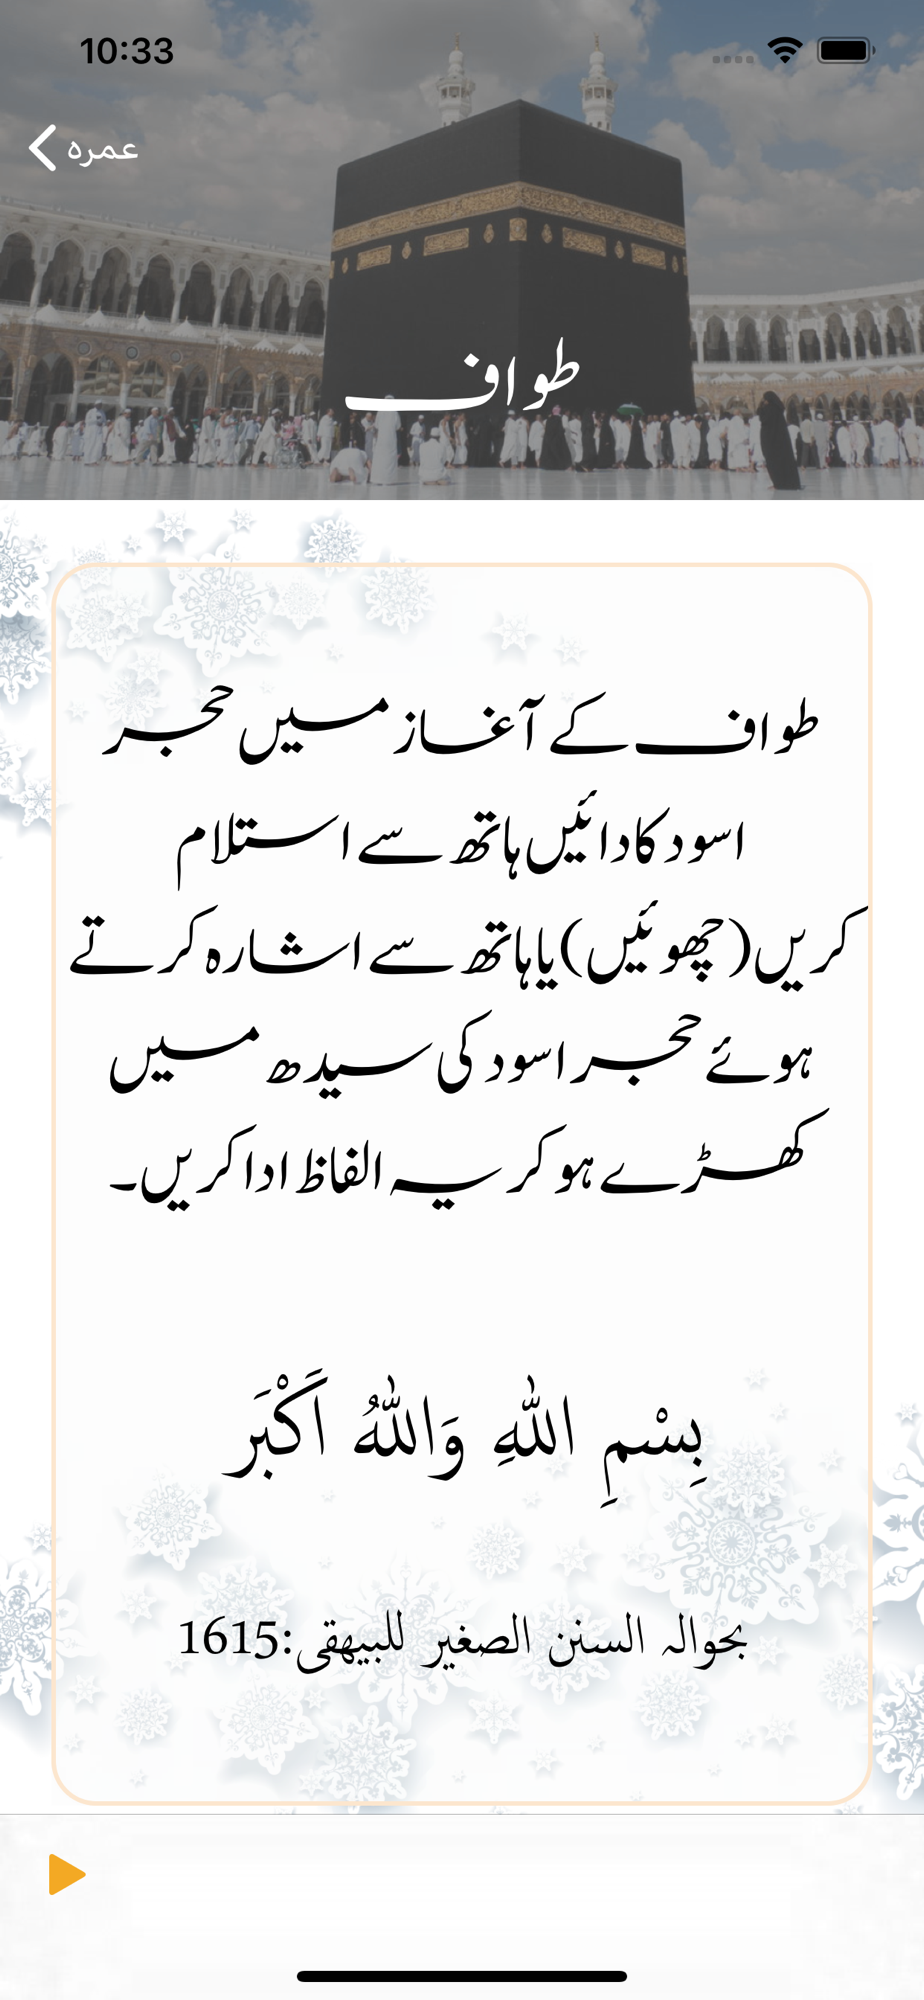 10:33
عمرہ
طواف
طواف کے آغاز میں حجر
اسود کا دائیں ہاتھ سے استلام
کریں(چھوئیں)یا ہاتھ سے اشارہ کرتے
ہوئے حجر اسود کی سیدھ میں
کھڑے ہو کر یہ الفاظ ادا کریں۔
بِسْمِ اللّٰهِ وَاللّٰهُ اَكْبَر
بحوالہ السنن الصغیر للبیھقی:1615